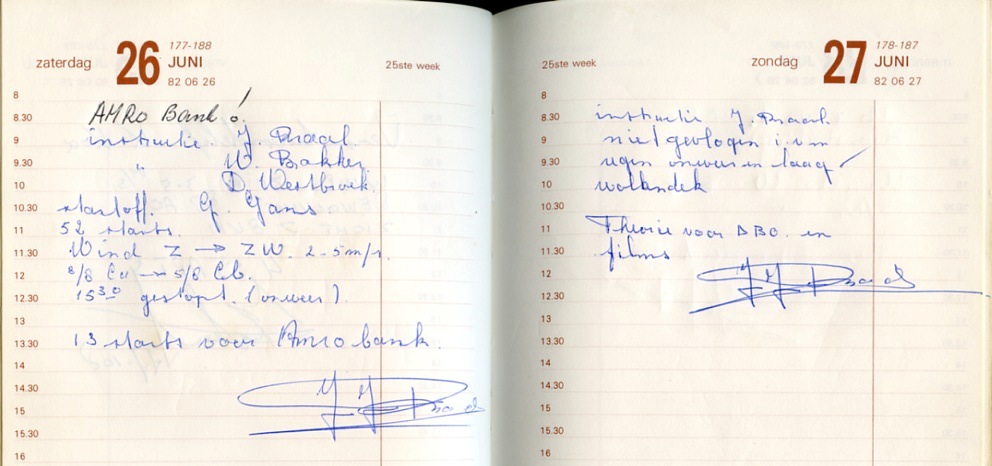 zaterdag 26 177-188
JUNI
82 06 26
25ste week
8
AMRO Bank!
8.30
9 instructie. J. Draad.
9.30 " W. Bakker
10 D. Westbroek.
10.30 startoff. G. Gans
11 52 starts.
11.30 Wind Z → ZW. 2-5 m/s.
12 8/8 Cu → 5/8 Cb.
12.30 15³⁰ gestopt. (onweer).
13
13.30 13 starts voor Amro bank.
14
14.30
15 J J Draad
15.30
16
25ste week
zondag 27 178-187
JUNI
82 06 27
8
8.30 instructie J. Draad.
9 niet gevlogen i.v.m
9.30 regen onweer en laag
10 wolkendek
10.30
11 Theorie voor DBO. en
11.30 films
12 J J Draad
12.30
13
13.30
14
14.30
15
15.30
16